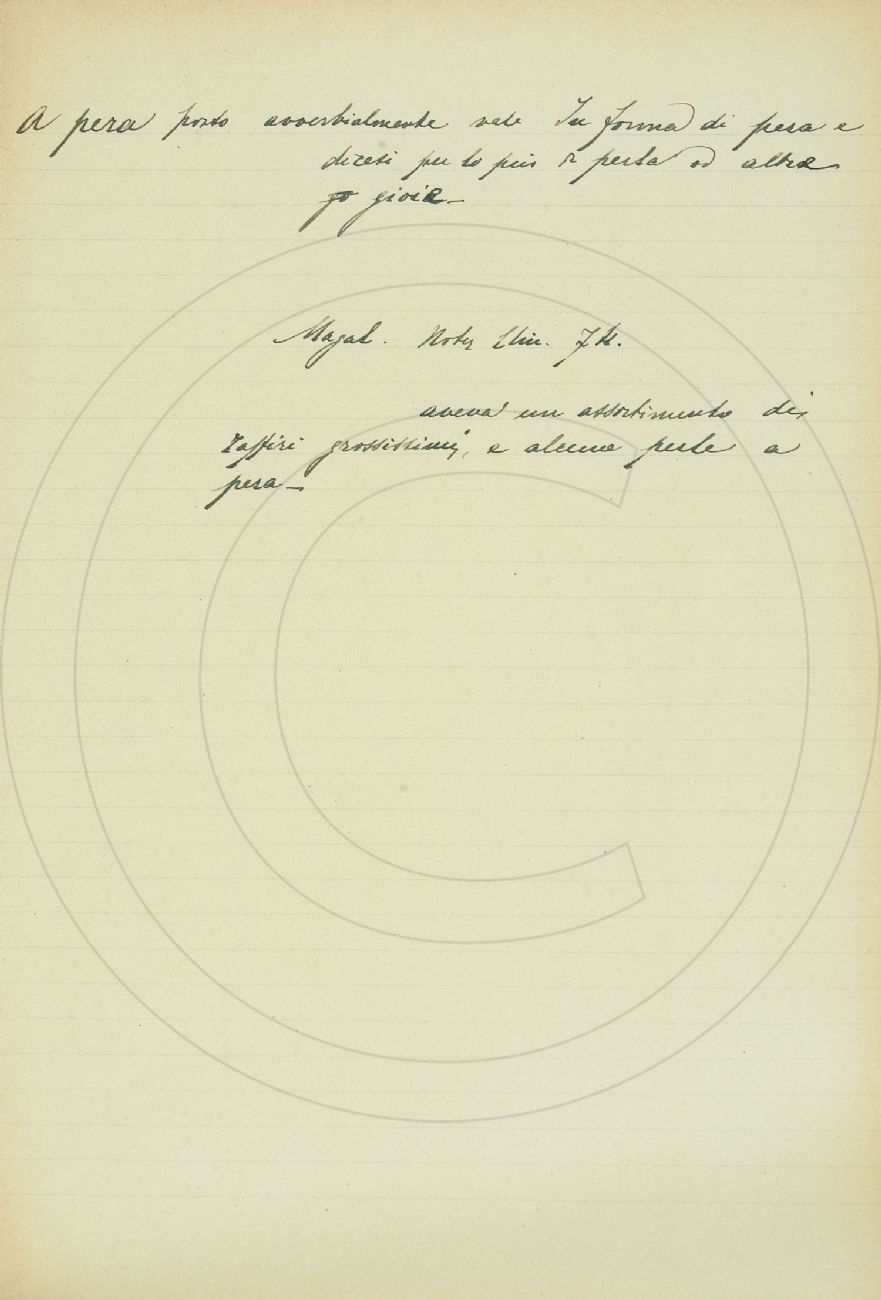 A pera posto avverbialmente vale In forma di pera e
dicesi per lo più di perla od altra
go gioia –
Magal. Notiz
aveva un assortimento di
zaffiri grossissimi, e alcune perle a
pera –